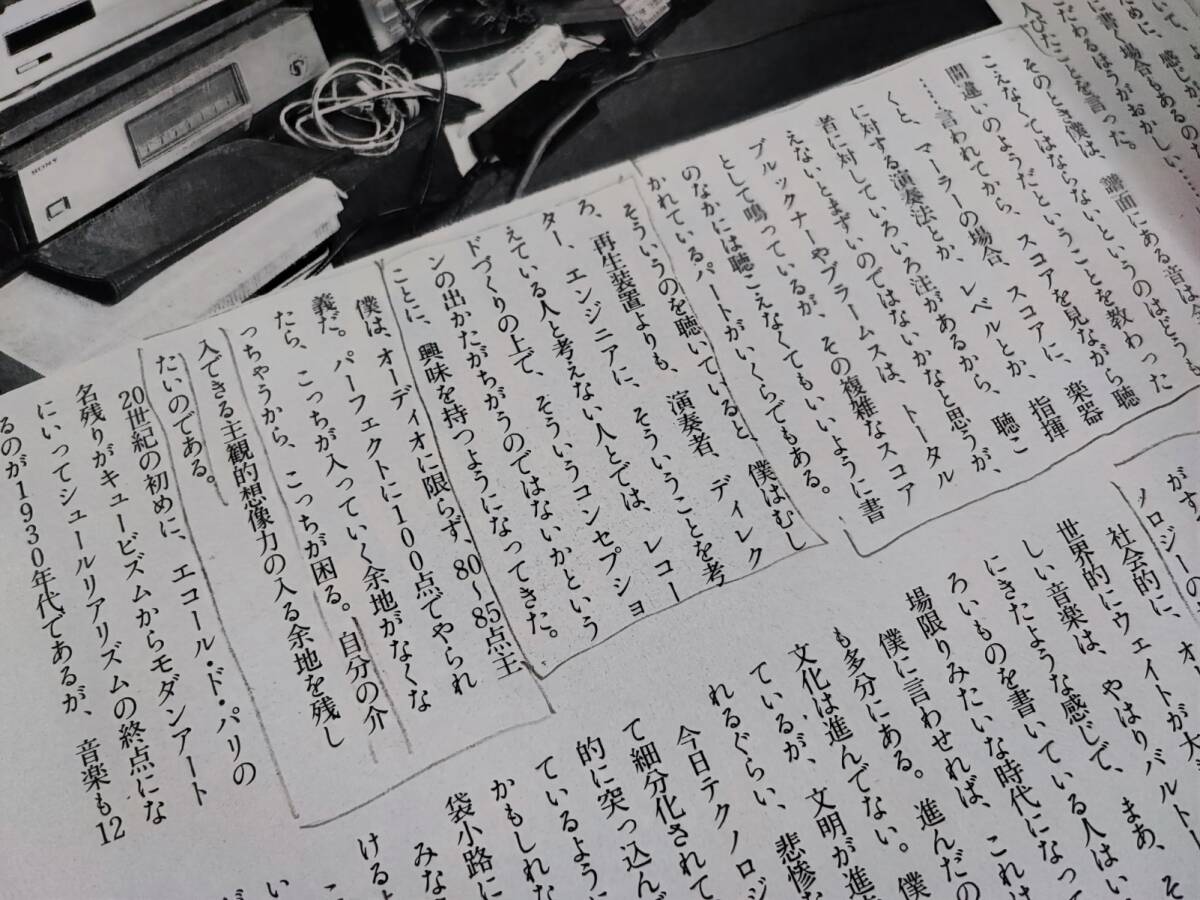 SONY
人びたことを言った。
そのとき僕は、譜面にある音は全
こえなくてはならないというのはどうも
間違いのようだということを教わった
……言われてから、スコアを見ながら聴
くと、マーラーの場合、スコアに、楽器
に対する演奏法とか、レベルとか、指揮
者に対していろいろ注があるから、聴こ
えないとまずいのではないかなと思うが、
ブルックナーやブラームスは、トータル
として鳴っているが、その複雑なスコア
のなかには聴こえなくてもいいように書
かれているパートがいくらでもある。
そういうのを聴いていると、僕はむし
ろ、再生装置よりも、演奏者、ディレク
ター、エンジニアに、そういうことを考
えている人と考えない人とでは、レコー
ドづくりの上で、そういうコンセプショ
ンの出かたがちがうのではないかという
ことに、興味を持つようになってきた。
僕は、オーディオに限らず、80〜85点主
義だ。パーフェクトに100点でやられ
たら、こっちが入っていく余地がなくな
っちゃうから、こっちが困る。自分の介
入できる主観的想像力の入る余地を残し
たいのである。
20世紀の初めに、エコール・ド・パリの
名残りがキュービズムからモダンアート
にいってシュールリアリズムの終点にな
るのが1930年代であるが、音楽も12
がす
メロジーの
社会的に、オ
世界的にウェイトが大
しい音楽は、やはりバルト
にきたような感じで、まあ、
ろいものを書いている人はい
場限りみたいな時代になって
僕に言わせれば、これは
も多分にある。進んだの
文化は進んでない。僕
ているが、文明が進
れるぐらい、悲惨な
今日テクノロジ
て細分化されて
的に突っ込んで
ているように
かもしれな
袋小路に
みな
ける